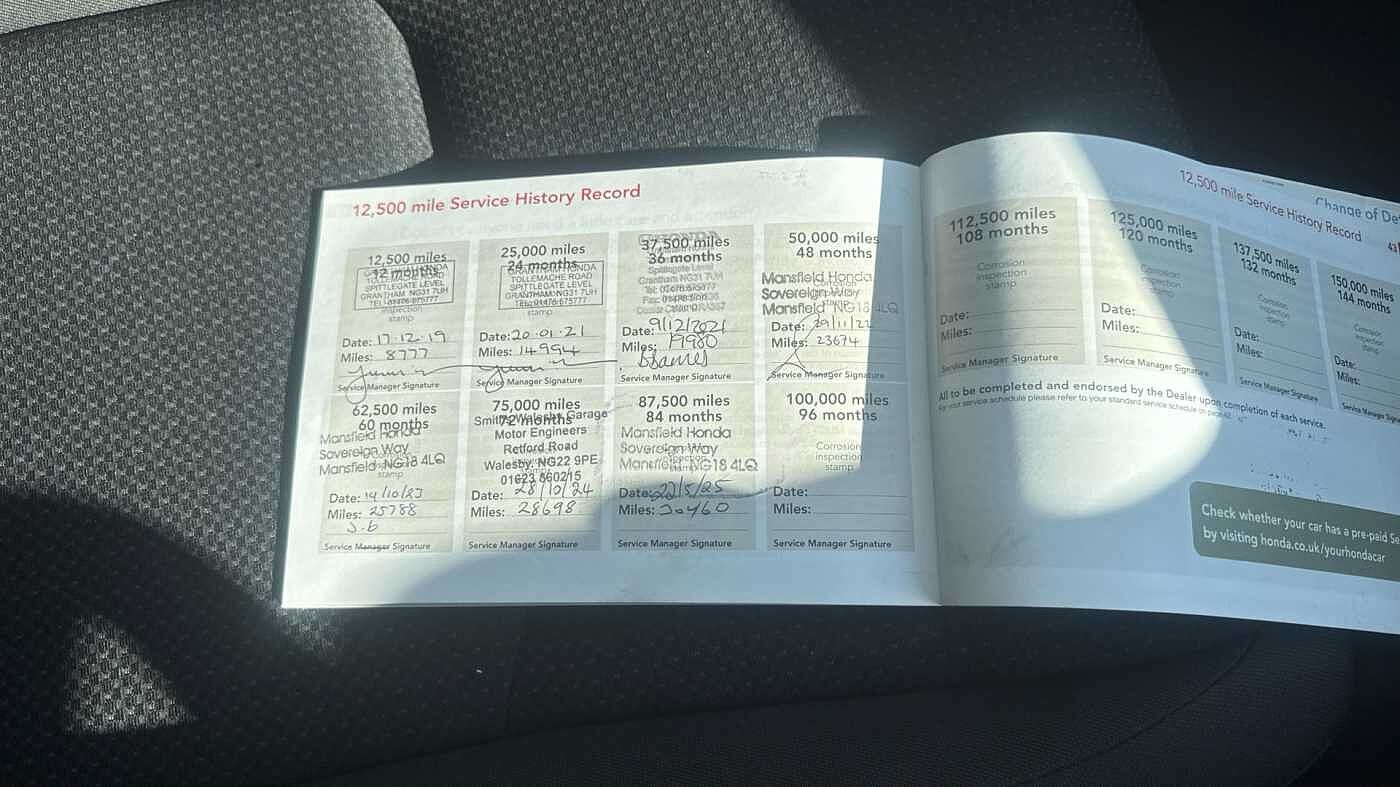 12,500 mile Service History Record
12,500 miles
12 months
TOLLEMACHE ROAD
SPITTLEGATE LEVEL
GRANTHAM NG31 7UH
TEL: 01476 575777
inspection
stamp
Date: 17.12.19
Miles: 8777
Service Manager Signature
25,000 miles
24 months
HONDA
TOLLEMACHE ROAD
SPITTLEGATE LEVEL
GRANTHAM NG31 7UH
TEL: 01476 575777
stamp
Date: 20.01.21
Miles: 14994
Service Manager Signature
37,500 miles
36 months
Spittlegate Level
Grantham NG31 7UH
Date: 9/12/2021
Miles: 19980
Service Manager Signature
50,000 miles
48 months
Mansfield Honda
Sovereign Way
Mansfield NG18 4LQ
Date: 29/11/22
Miles: 23674
Service Manager Signature
62,500 miles
60 months
Mansfield Honda
Sovereign Way
Mansfield NG18 4LQ
stamp
Date: 14/10/23
Miles: 25788
J.b
Service Manager Signature
75,000 miles
72 months
Walesby Garage
Motor Engineers
Retford Road
Walesby, NG22 9PE
01623 860215
Date: 28/10/24
Miles: 28698
Service Manager Signature
87,500 miles
84 months
Mansfield Honda
Sovereign Way
Mansfield NG18 4LQ
Date: 22/5/25
Miles: 30460
Service Manager Signature
100,000 miles
96 months
Corrosion
inspection
stamp
Date:
Miles:
Service Manager Signature
Change of De
12,500 mile Service History Record
112,500 miles
108 months
Corrosion
inspection
stamp
Date:
Miles:
Service Manager Signature
125,000 miles
120 months
Corrosion
inspection
stamp
Date:
Miles:
Service Manager Signature
137,500 miles
132 months
Corrosion
inspection
stamp
Date:
Miles:
Service Manager Signature
150,000 miles
144 months
Corrosion
inspection
stamp
Date:
Miles:
Service Manager Signa
All to be completed and endorsed by the Dealer upon completion of each service.
For your service schedule please refer to your standard service schedule on page
Check whether your car has a pre-paid Se
by visiting honda.co.uk/yourhondacar